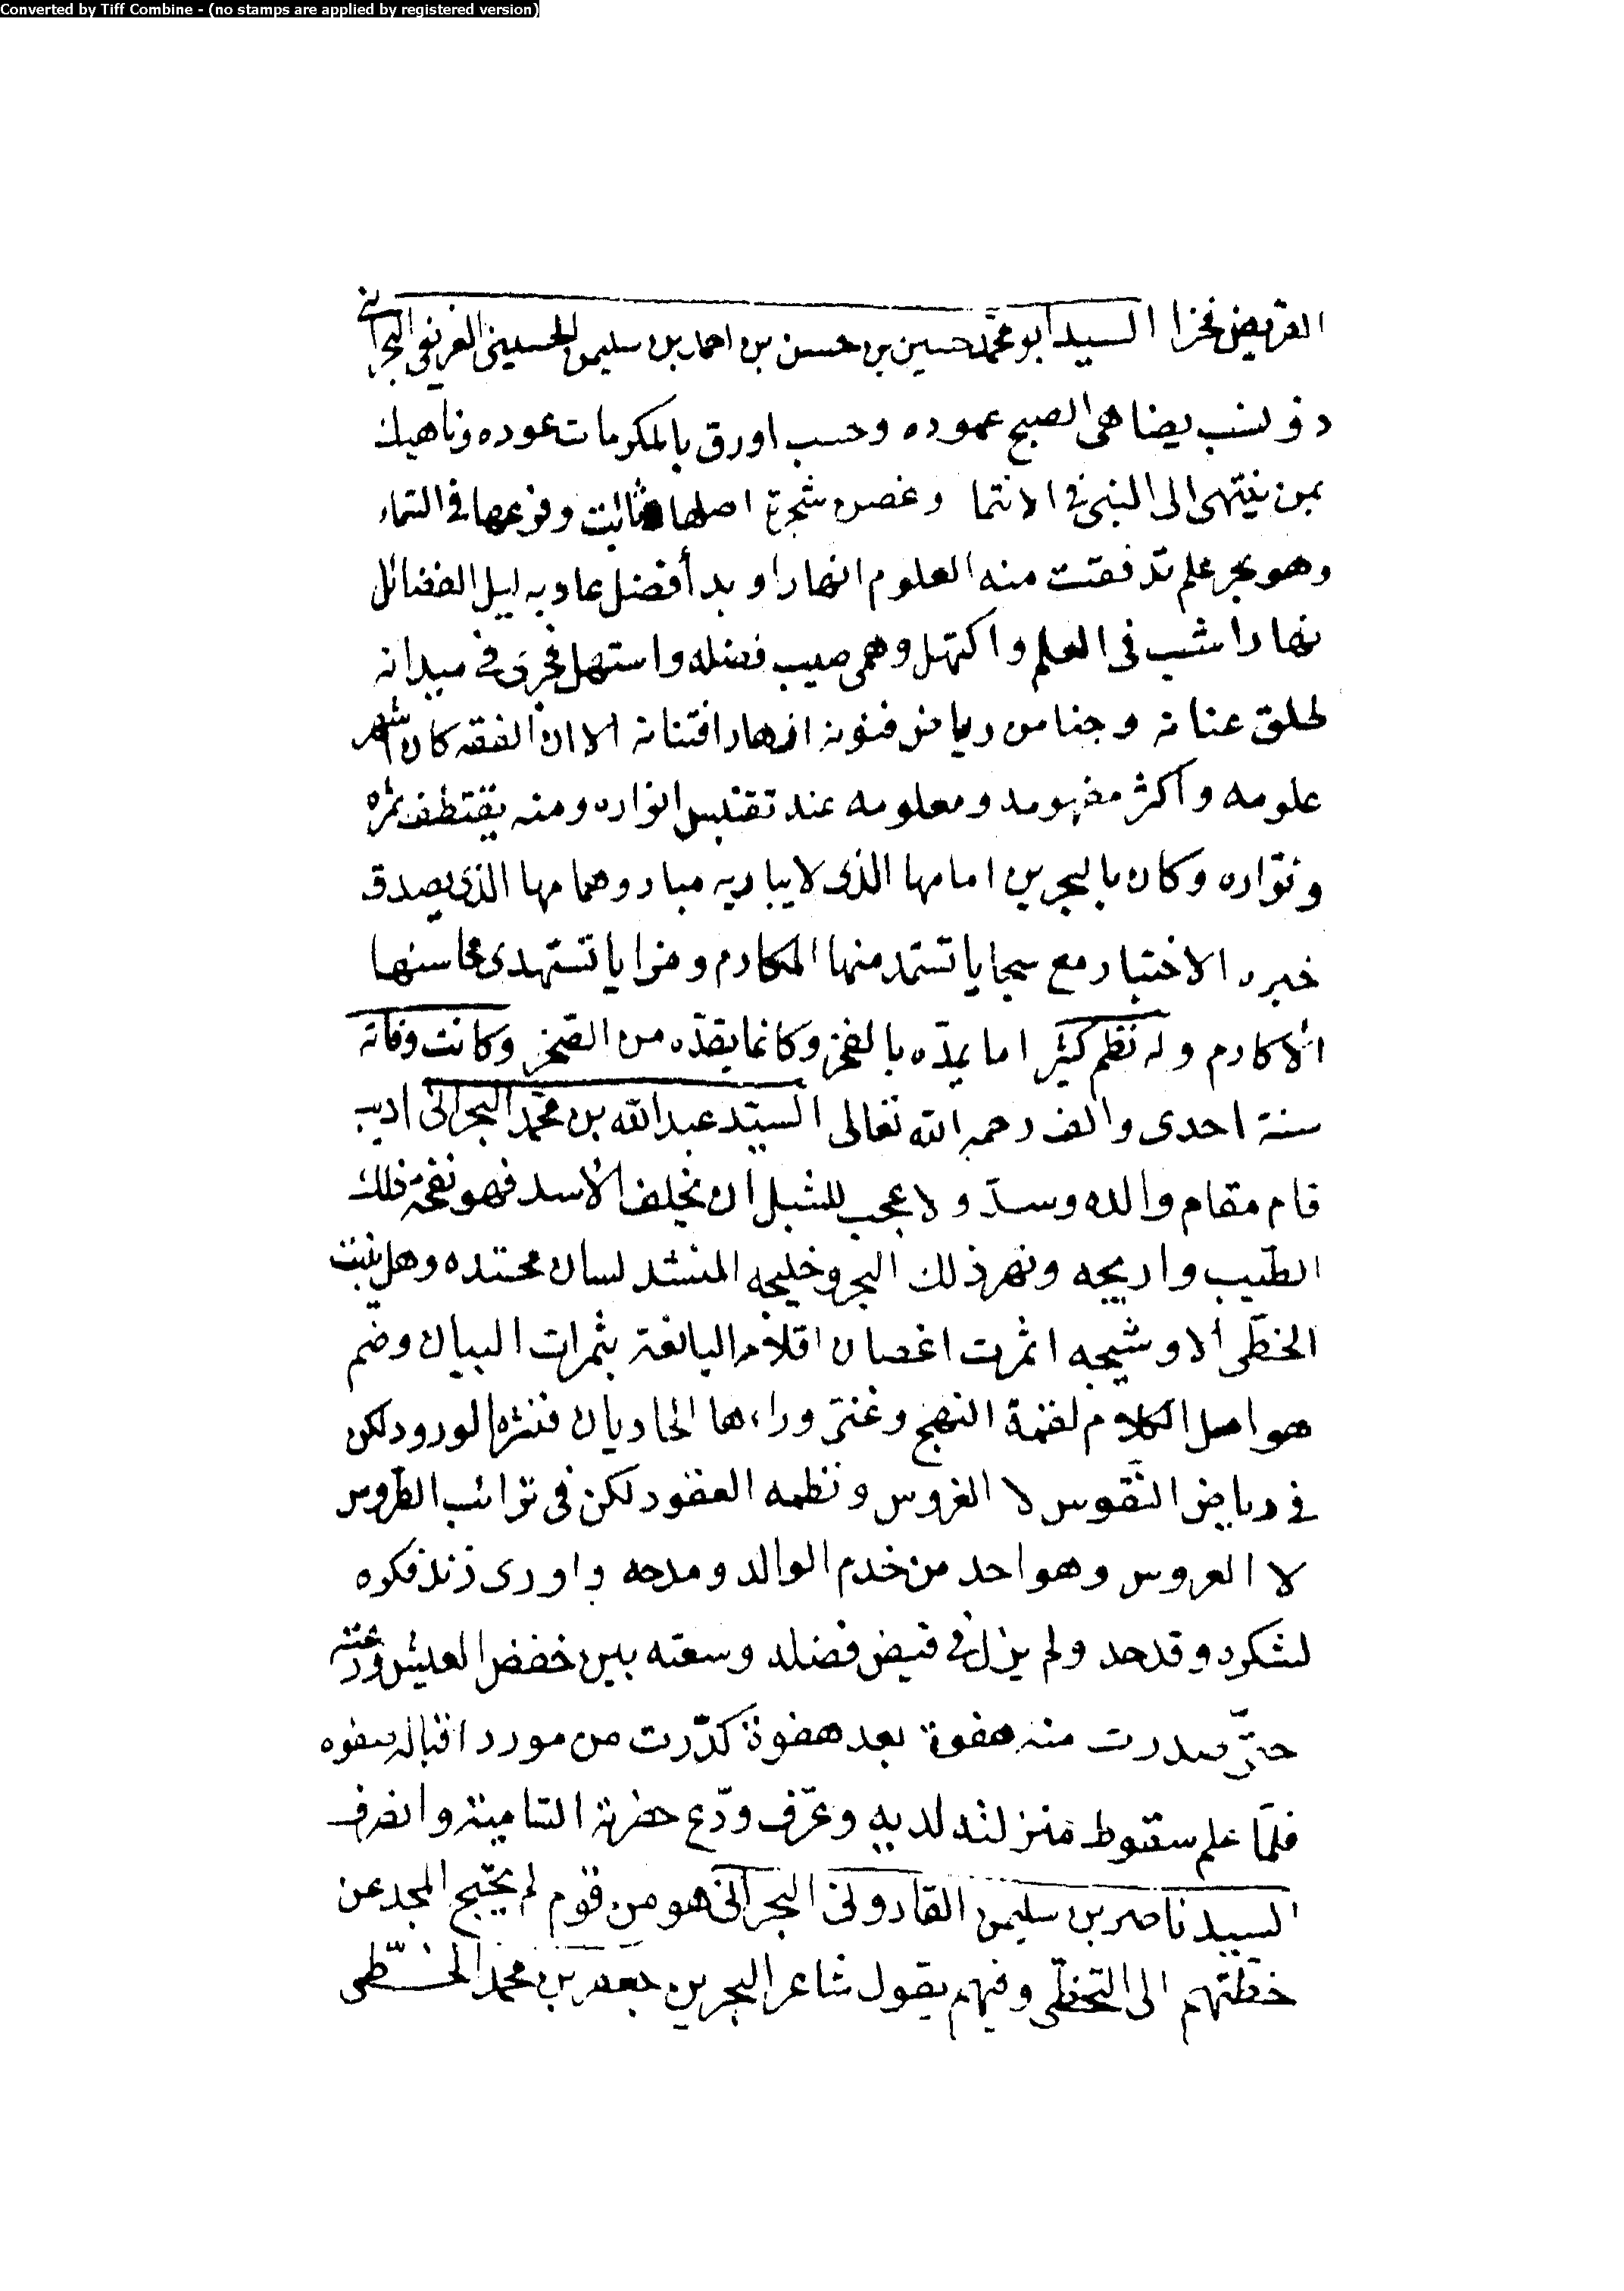 Converted by Tiff Combine - (no stamps are applied by registered version)
القريض فخرا السيد ابو محمد حسين بن حسن بن احمد بن سليمن الحسيني الغريفي البحراني
ذو نسب يضاهى الصبح عموده وحسب اورق بالمكرمات عوده وناهيك
بمن ينتهى الى النبى فى الانتما وغصن شجرة اصلها ثابت وفرعها فى السماء
وهو بحر علم تدفقت منه العلوم انهارا وبدأ فضل عاد به ليل الفضائل
نهارا شب فى العلم واكتهل وهمى صيب فضله واستهل فجرى فى ميدانه
طلق عنانه وجنا من رياض فنونه ازهار افتنانه الا ان الفقه كان اشهر
علومه واكثر مفهومه ومعلومه عند تقتبس انواره ومنه يقتطف ثمره
ونواره وكان بالبحرين امامها الذى لا يباريه مبار وهمامها الذى يصدق
خبره الاختبار مع سجايا تستمد منها المكارم ومزايا تستهدى محاسنها
الأكارم وله نظم كثير اما يمدّه بالفخر وكانما يقدّه من الصخر وكانت وفاته
سنة احدى والف رحمه الله تعالى السيّد عبد الله بن محمّد البحرانى اديب
قام مقام والده وسدّ ولا عجب للشبل ان يخلف الأسد فهو نفحة ذلك
الطيب واريجه ونهر ذلك البحر وخليجه المنشد لسان محتده وهل ينبت
الخطّى ألا وشيجه اثمرت اغصان اقلامه اليانعة بثمرات البيان وضم
هو اصل الكلام لفمة النهج وغنى وراءها الحاديان فنثره الورود لكن
فى رياض النقوس لا الغروس ونظمه العقود لكن فى ترائب الطروس
لا العروس وهو احد من خدم الوالد ومدحه واورى زند فكره
لشكره وقدحه ولم يزل فى فيض فضله وسعته بين خفض العيش ودعته
حتّى صدرت منه هفوة بعد هفوة كدّرت من مورد اقباله صفوه
فلمّا علم سقوط منزلته لديه وعرّف ودّع حضرته السامية وانصرف
السيد ناصر بن سليمن القارونى البحرانى هو من قوم لم يحتج المجد عن
خطّتهم الى التخطّى وفيهم يقول شاعر البحرين جعفر بن محمد الخطّى